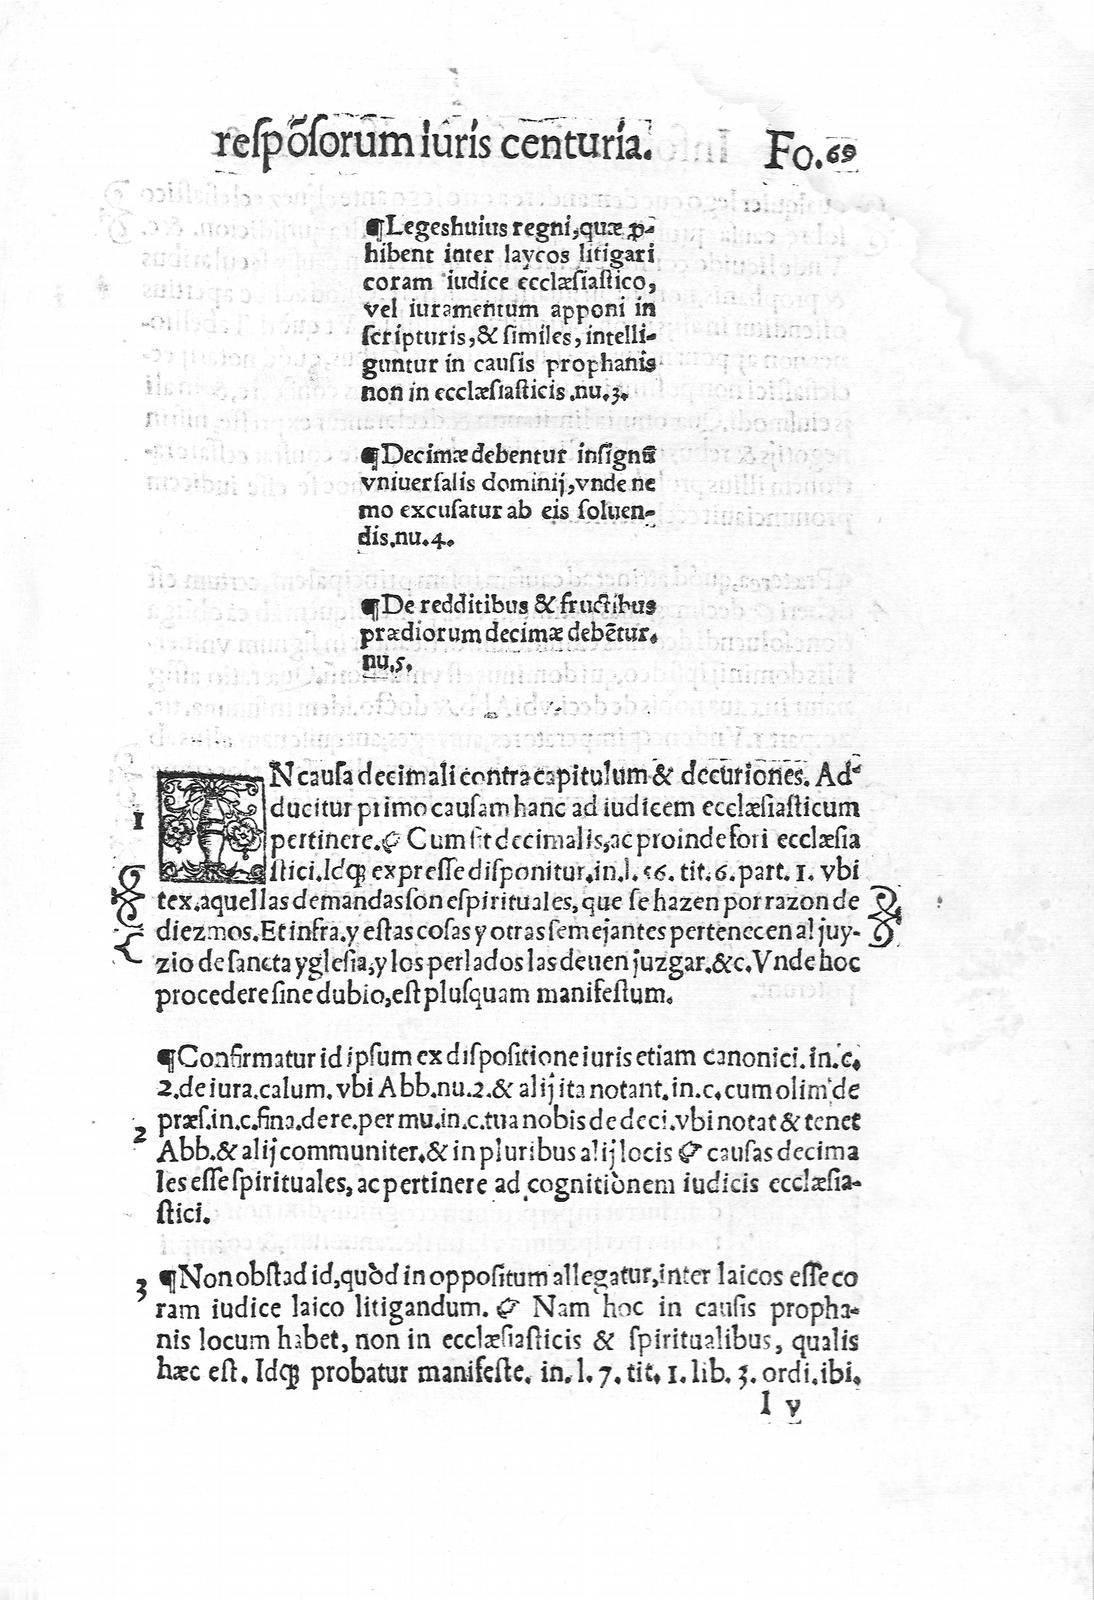 respõsorum iuris centuria. Fo.69
¶Leges huius regni, quæ ꝓ-
hibent inter laycos litigari
coram iudice ecclæsiastico,
vel iuramentum apponi in
scripturis, & similes, intelli-
guntur in causis prophanis
non in ecclæsiasticis.nu.3.
¶Decimæ debentur in signũ
vniuersalis dominij, vnde ne
mo excusatur ab eis soluen-
dis.nu.4.
¶De redditibus & fructibus
prædiorum decimæ debẽtur.
nu.5.
IN causa decimali contra capitulum & decuriones. Ad-
ducitur primo causam hanc ad iudicem ecclæsiasticum
1 pertinere.☞ Cum sit decimalis, ac proinde fori ecclæsia
stici. Idq; expresse disponitur.in.l.56. tit.6.part.1. vbi
tex.aquellas demandas son espirituales, que se hazen por razon de
diezmos. Et infra.y estas cosas y otras semejantes pertenecen al juy-
zio de sancta yglesia, y los perlados las deuen juzgar.&c. Vnde hoc
procedere sine dubio, est plusquam manifestum.
¶Confirmatur id ipsum ex dispositione iuris etiam canonici. in.c.
2.de iura.calum. vbi Abb.nu.2.& alij ita notant.in.c.cum olim de
præs.in.c.fina.de re.permu.in.c.tua nobis de deci.vbi notat & tenet
2 Abb.& alij communiter.& in pluribus alij locis ☞ causas decima
les esse spirituales, ac pertinere ad cognitionem iudicis ecclæsia-
stici.
3 ¶Non obstad id, quòd in oppositum allegatur, inter laicos esse co
ram iudice laico litigandum. ☞ Nam hoc in causis propha-
nis locum habet, non in ecclæsiasticis & spiritualibus, qualis
hæc est. Idq; probatur manifeste. in.l.7. tit.1.lib.3. ordi.ibi.
I v